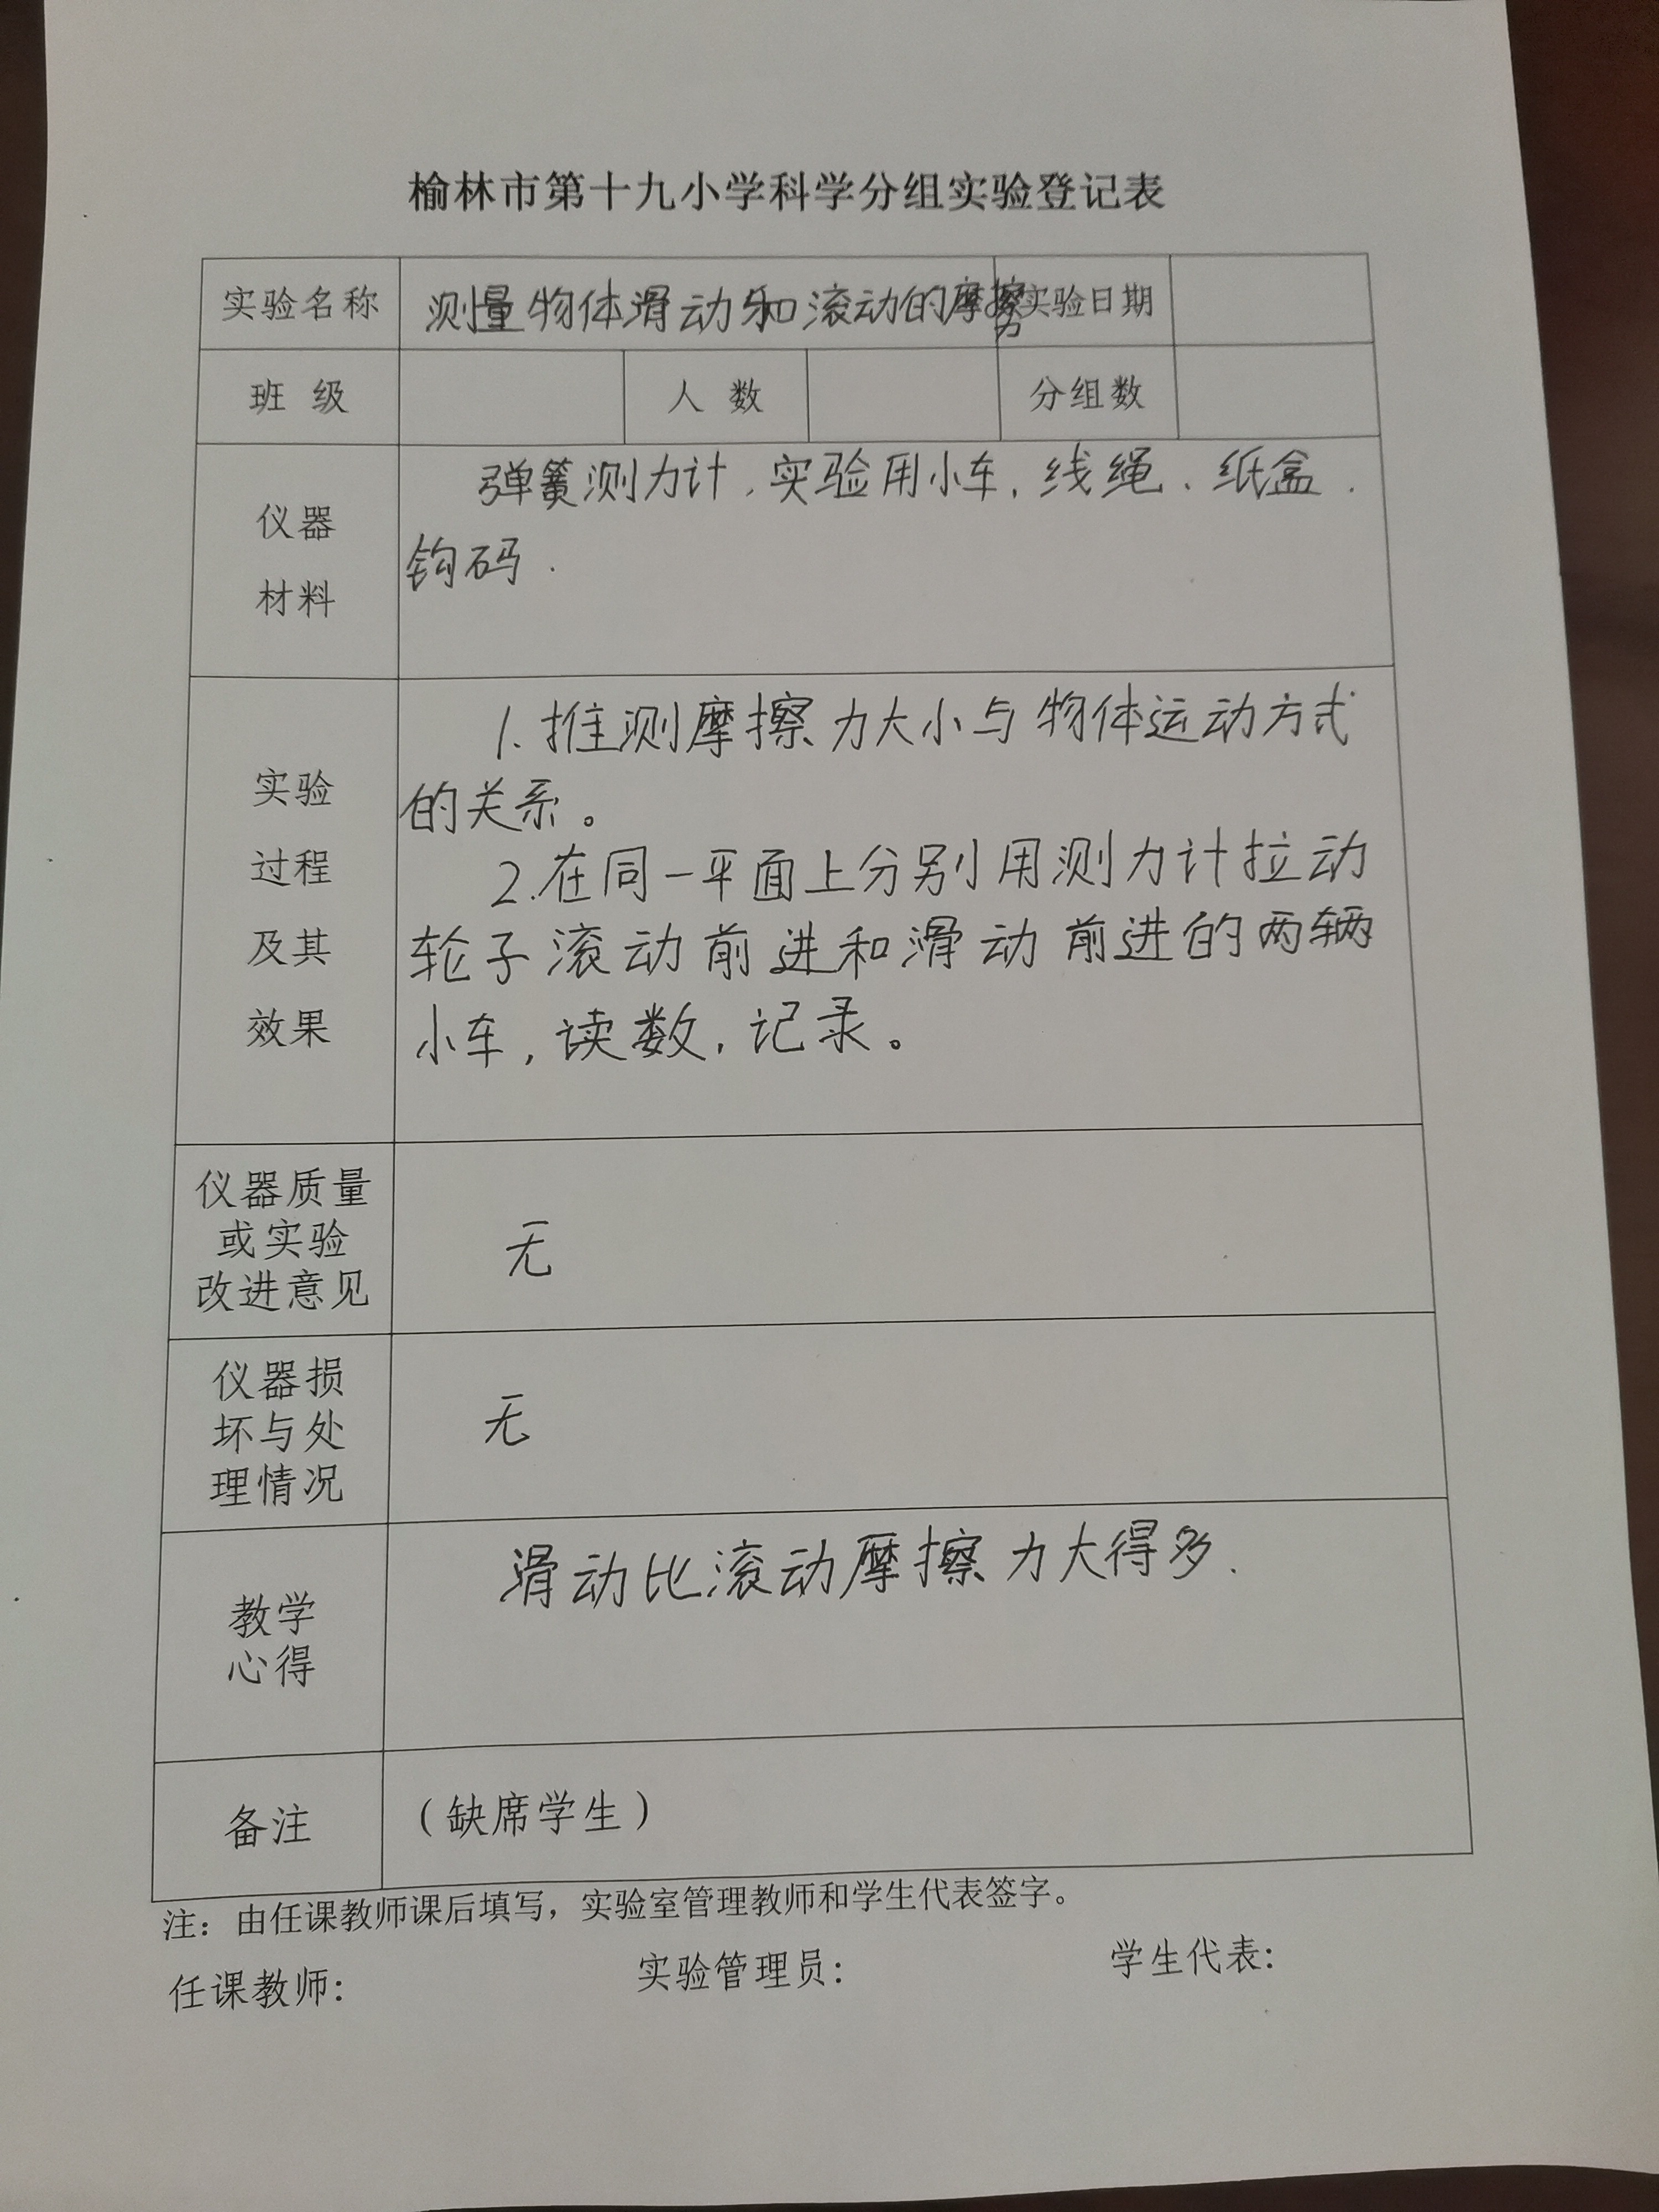 榆林市第十九小学科学分组实验登记表
实验名称 测量物体滑动和滚动的摩擦力 实验日期
班 级 人 数 分组数
仪器
材料
弹簧测力计，实验用小车，线绳、纸盒．
钩码．
实验
过程
及其
效果
1.推测摩擦力大小与物体运动方式
的关系。
2.在同一平面上分别用测力计拉动
轮子滚动前进和滑动前进的两辆
小车，读数，记录。
仪器质量
或实验
改进意见
无
仪器损
坏与处
理情况
无
教学
心得
滑动比滚动摩擦力大得多．
备注 （缺席学生）
注：由任课教师课后填写，实验室管理教师和学生代表签字。
任课教师： 实验管理员： 学生代表：